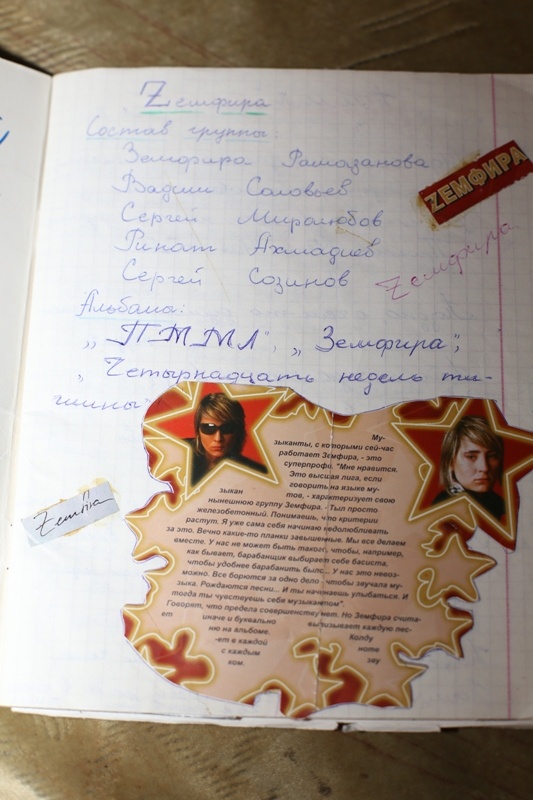 Zемфира
Состав группы:
Земфира Рамазанова
Вадим Соловьев
Сергей Миролюбов
Ринат Ахмадиев
Сергей Созинов
ZЕМФИРА
Zемфира
Альбомы:
„ПММЛ", „Земфира",
„Четырнадцать недель ти-
шины"
Му-
зыканты, с которыми сей-час
работает Земфира, - это
суперпрофи. "Мне нравится.
Это высшая лига, если
говорить на языке му-
зыкан
тов, - характеризует свою
нынешнюю группу Земфира. - Тыл просто
железобетонный. Понимаешь, что критерии
растут. Я уже сама себя начинаю недолюбливать
за это. Вечно какие-то планки завышенные. Мы все делаем
вместе. У нас не может быть такого, чтобы, например,
как бывает, барабанщик выбирает себе басиста,
чтобы удобнее барабанить было... У нас это невоз-
можно. Все борются за одно дело - чтобы звучала му-
зыка. Рождаются песни... И ты начинаешь улыбаться. И
тогда ты чувствуешь себя музыкантом".
Говорят, что предела совершенству нет. Но Земфира счита-
ет иначе и буквально вылизывает каждую пес-
ню на альбоме. Колду
-ет в каждой ноте
с каждым зву
ком.